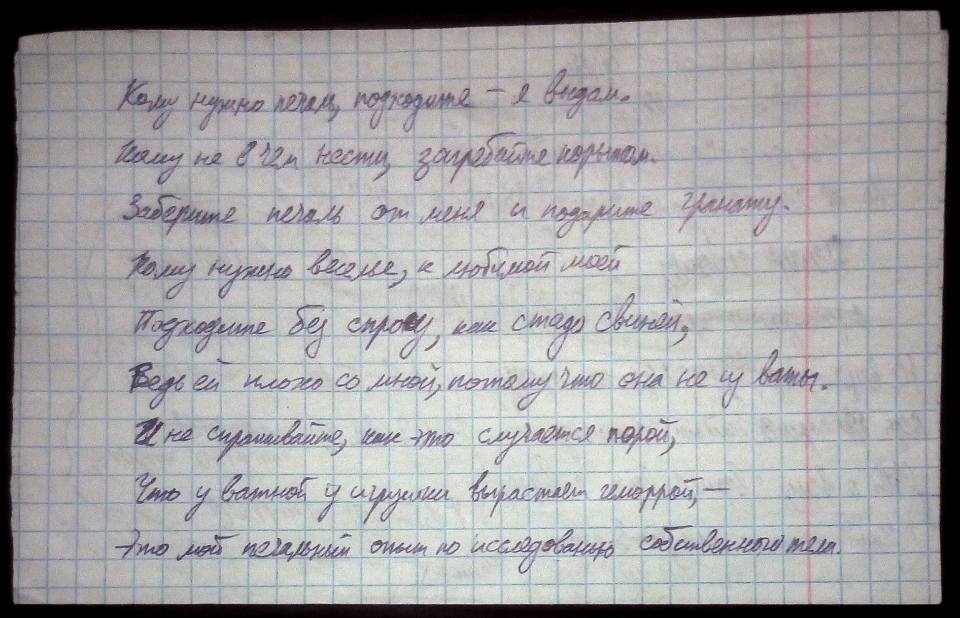 Кому нужна печаль, подходите – я выдам.
Кому не в чем нести, загребайте корытом.
Заберите печаль от меня и подарите гранату.
Кому нужно веселье, к любимой моей
Подходите без спросу, как стадо свиней,
Ведь ей плохо со мной, потому что она не из ваты.
И не спрашивайте, как это случается порой,
Что у ватной у игрушки вырастает геморрой, –
Это мой печальный опыт по исследованию собственного тела.